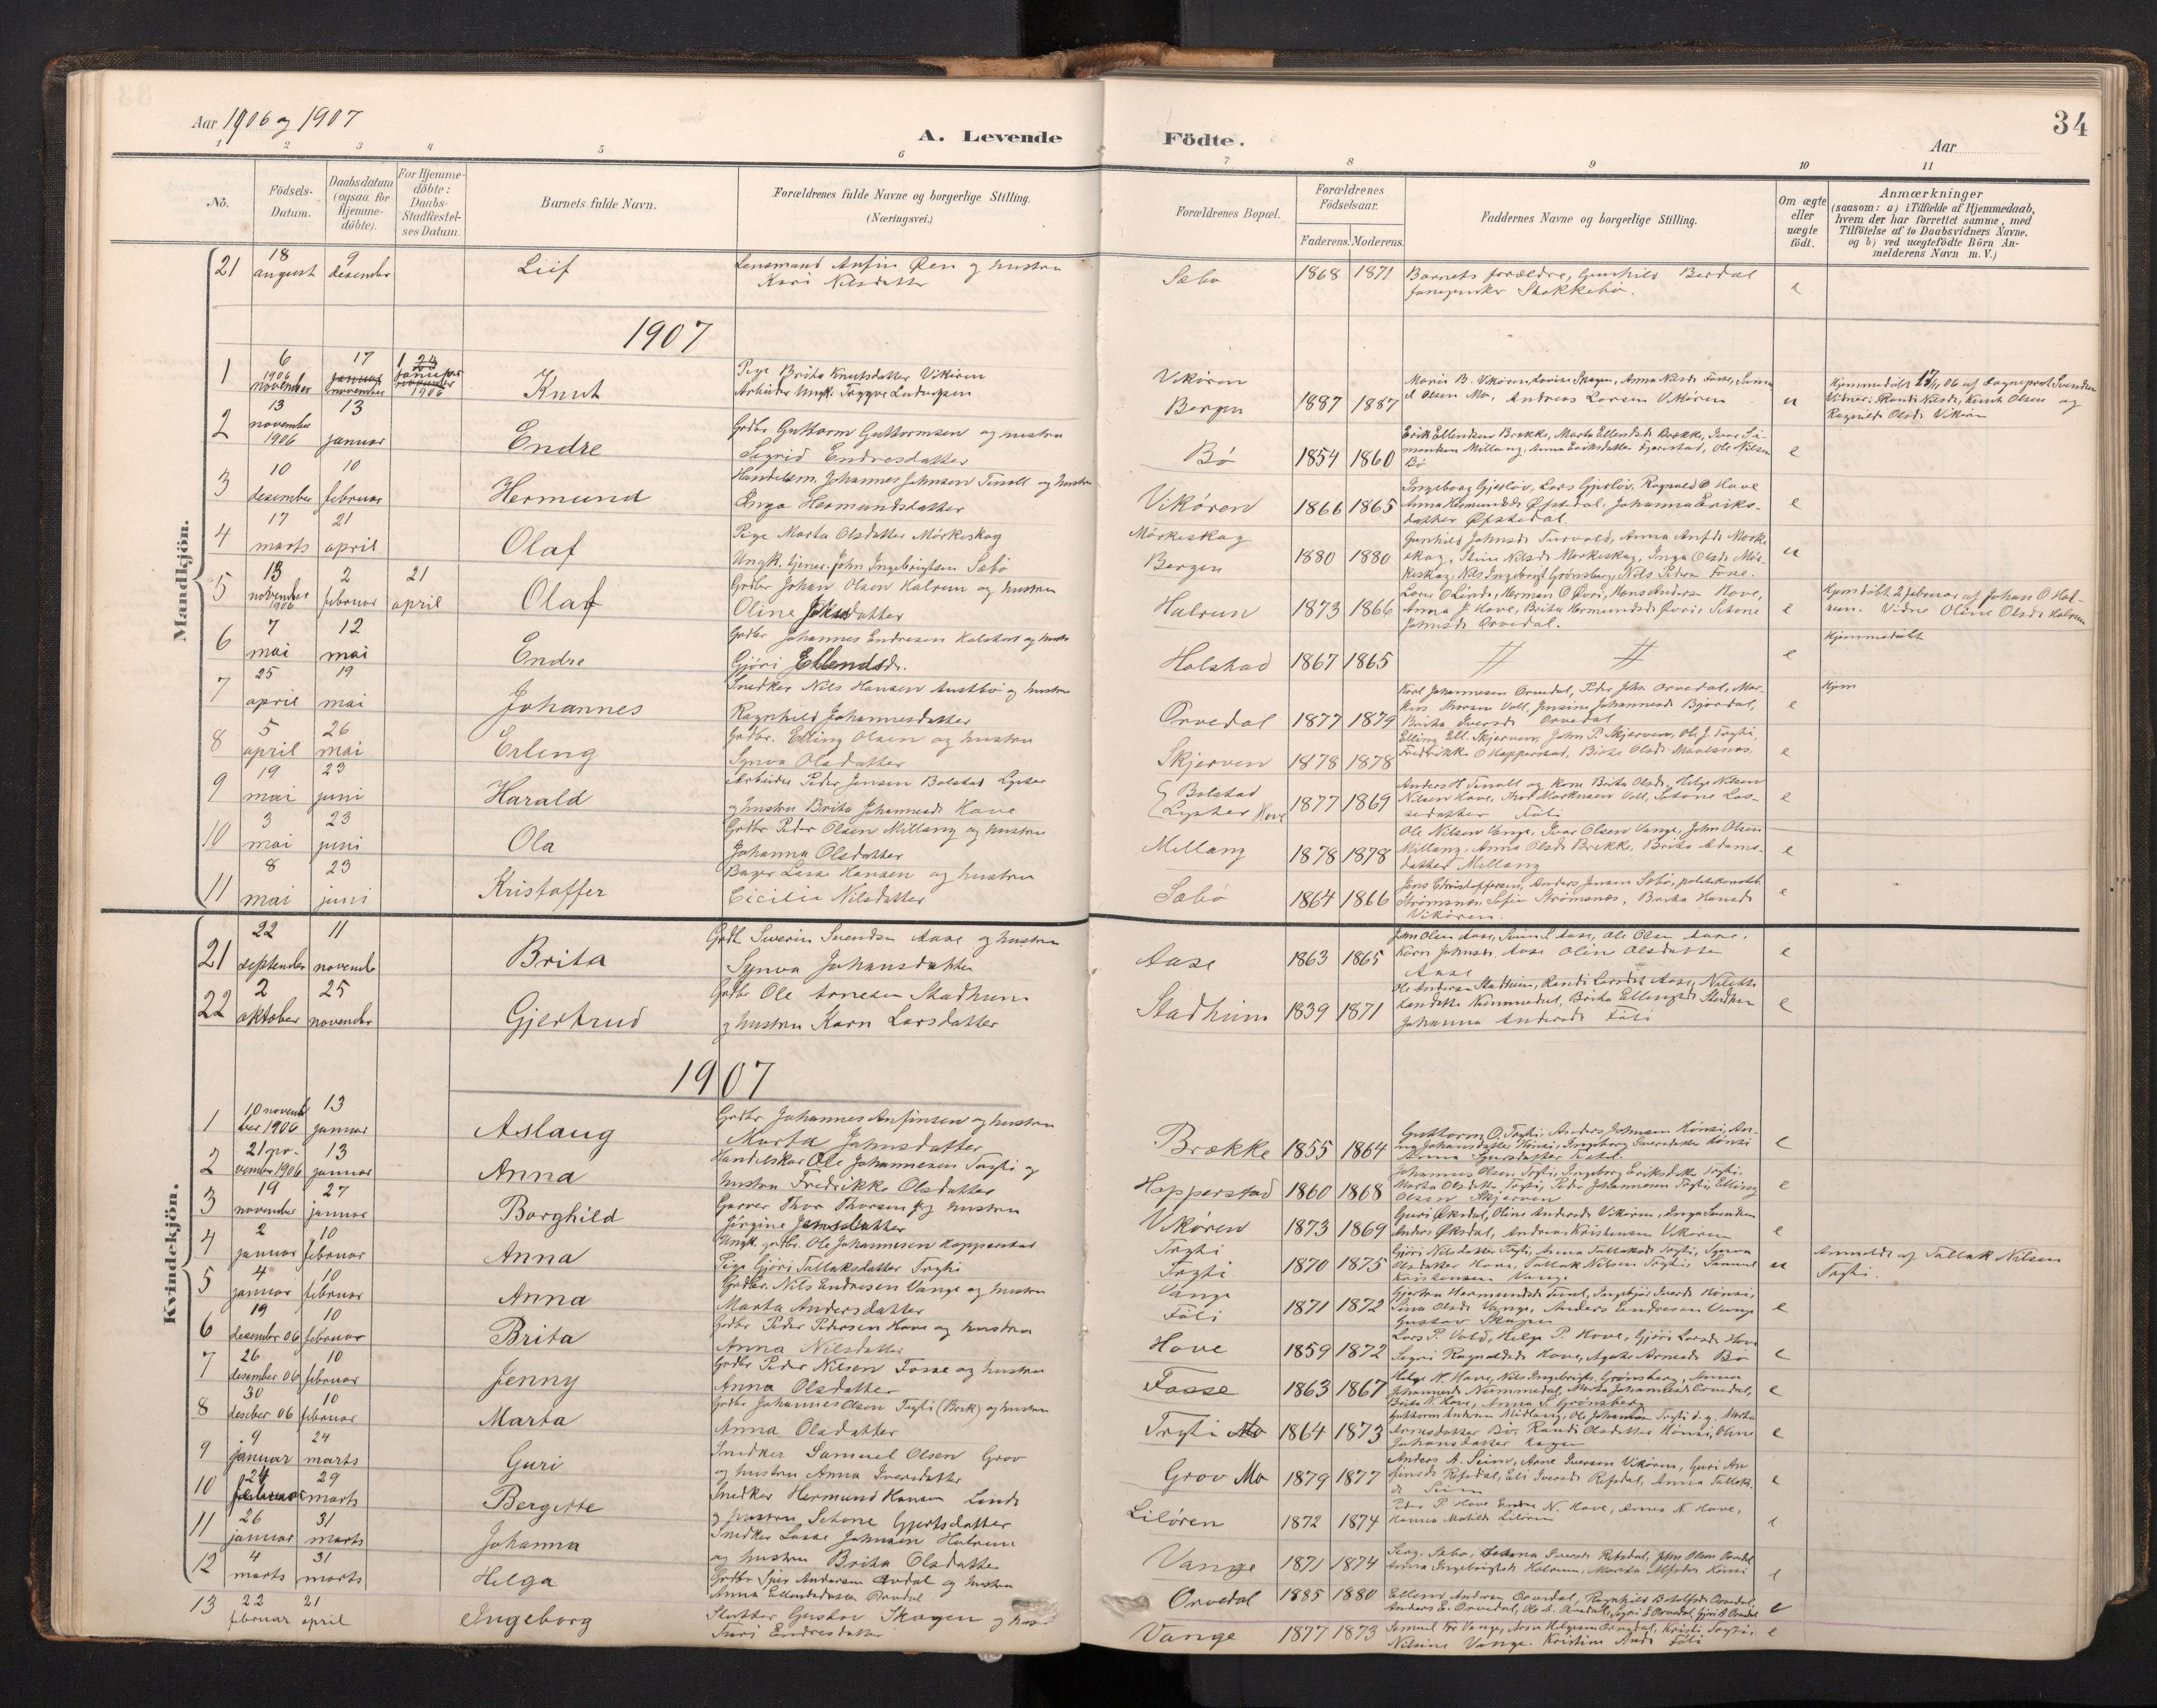 Aar 1906 og 1907
A. Levende Födte.
34
Aar
1 2 3 4 5 6 7 8 9 10 11
No.
Födsels-
Datum.
Daabsdatum
(ogsaa for
Hjemme-
döbte).
For Hjemme-
döbte:
Daabs-
Stadfæstel-
ses Datum.
Barnets fulde Navn.
Forældrenes fulde Navne og borgerlige Stilling.
(Næringsvei.)
Forældrenes Bopæl.
Forældrenes
Födselsaar.
Faderens. Moderens.
Faddernes Navne og borgerlige Stilling.
Om ægte
eller
uægte
födt.
Anmærkninger
(saasom: a) i Tilfælde af Hjemmedaab,
hvem der har forrettet samme, med
Tilföielse af to Daabsvidners Navne.
og b) ved uægtefödte Börn An-
melderens Navn m. V.)
Mandkjön.
21 18 august 9 desember Leif Lensmand Anfin Øren og hustru
Kari Nilsdatter Sæbø 1868 1871 Barnets forældre, Gunhild Berdal
Stokkebø. e
1907
1 6 november 1906 17 november 1906 Knut Pige Brita Knutsdatter Vikören
Arbeider Ungk. Tryggve Ludvigsen Vikören
Bergen 1887 1887 Maris B. Vikören, Lovise Skagen, Anna Nilsd. Fosse,
Olsen Mo, Andreas Larsen Vikören u Hjemmedöbt 17/11 06 af Sogneprest Svendsen
Vidner: Randi Nilsd., Knut Olsen og
Ragnilda Olsd. Vikören
2 13 november 1906 13 januar Endre Grdbr Guttorm Guttormsen og hustru
Sigrid Endresdatter Bö 1854 1860 Erik Ellendsen Brekke, Marta Ellendsd. Brekke, Ivar Si-
monsen Millang, Anna Eriksdatter Ole Nilsen
Bö e
3 10 desember 10 februar Hermund Handelsm. Johannes Johnsen Tenoll og hustru
Inga Hermundsdatter Vikören 1866 1865 Ingeborg Gjerlöv, Lars Gjerlöv, Ragnvald O Hove
Anna Hermundsd. Øfstedal, Johanna Eriks-
datter Øfstedal. e
4 17 marts 21 april Olaf Pige Marta Olsdatter Mörkeskog
Ungk. tjener John Ingebrigtsen Sæbö Mörkeskog
Bergen 1880 1880 Gunhild Johnsd. Anna Anfd. Mörke-
skog, Stine Nilsd. Mörkeskog, Inga Olsd. Mör-
keskog, Nils Ingebrigt Grönsberg, Nils Peders. Fosse. u
5 13 november 1906 2 februar 21 april Olaf Grdbr Johan Olsen Halrun og hustru
Oline Johnsdatter Halrun 1873 1866 Lars O Linde, Herman O Øvri, Hans Andersen Hove,
Anna J. Hove, Brita Hermundsd. Øvri, Setone
Johnsd. Orvedal. e Hjemdöbt 2 februar af Johan O Hal-
run. Vidne Oline Olsd. Halrun
6 7 mai 12 mai Endre Grdbr Johannes Endresen Holstad og hustru
Gjöri Ellendsd. Holstad 1867 1865 e Hjemmedöbt
7 25 april 19 mai Johannes Snedker Nils Hansen Austbö og hustru
Ragnhild Johannesdatter Orvedal 1877 1879 Karl Johannesen Orvedal, Peder Johs. Orvedal, Mar-
kus Voll, Jensine Johannesd. Björdal,
Brita Iversd. Orvedal e Hjem
8 5 april 26 mai Erling Grdbr. Elling Olsen og hustru
Synva Olsdatter Skjerven 1878 1878 Elling Ell. Skjerven, John P. Skjerven, Ole J. Trygti,
Fredrikke O Hopperstad, Olsd. e
9 19 mai 23 juni Harald Arbeider Peder Jensen Bolstad Lyster
og hustru Brita Johannesd. Hove Bolstad
Lyster Hove 1877 1869 Anders H Tenoll og kone Brita Olsd., Helge Nilsen
Nilsen Hove, Thor Markusen Voll, Setone Las-
sedatter Föli e
10 3 mai 23 juni Ola Grdbr Peder Olsen Millang og hustru
Johanna Olsdatter Millang 1878 1878 Ole Nilsen Vange, Ivar Olsen Vange, John Olsen
Millang, Anna Olsd. Brekke, Brita Adams-
datter Millang e
11 8 mai 23 juni Kristoffer Bager Lasse Hansen og hustru
Cicilie Nilsdatter Sæbö 1864 1866 Jens Christoffersen, Anders Jensen Sæbö, politikonstb.
Strömsnes, Sofie Strömsnes, Brita Hansd.
Vikören. e
Kvindekjön.
21 22 september 11 november Brita Grdb. Siverin Svendsen Aase og hustru
Synva Johansdatter Aase 1863 1865 John Olsen Aase, Aase, Ole Olsen Aase,
Karn Johnsd. Aase Olin Olsdatter
Aase e
22 2 oktober 25 november Gjertrud Grdbr Ole Arnesen Stadheim
og hustru Karn Larsdatter Stadheim 1839 1871 Ole Andersen Stadheim, Randi Larsd. Aase,
Brita
Johanna Andersd. Föli e
1907
1 10 november 1906 13 januar Aslaug Grdbr Johannes Anfinsen og hustru
Marta Johnsdatter Brække 1855 1864 Guttorm O. Trygti, Anders Johnsen Hönsi, An-
na Johansdatter Hönsi, Ingeborg Hönsi e
2 21 november 1906 13 januar Anna Handelskar Ole Johannesen Trygti og
hustru Fredrikke Olsdatter Hopperstad 1860 1868 Johannes Olsen Trygti, Ingeborg Eriksdatter Trygti,
Marta Olsdatter Trygti, Peder Johannesen Trygti, Elling
Olsen Skjerven e
3 19 november 27 januar Borghild Garver Thor Thorsen og hustru
Jörgine Jensdatter Vikören 1873 1869 Guri Øksdal, Oline Andersd. Vikören, Inga Svendsen
Anders Øksdal, Andreas Kristensen Vikören e
4 2 januar 10 februar Anna Ungk. grdbr. Ole Johannesen Hopperstad
Pige Gjöri Tallaksdatter Trygti Trygti
Trygti 1870 1875 Gjöri Nilsdatter Trygti, Anna Tallaksd. Trygti, Synva
Olsdatter Hove, Tallak Nilsen Trygti, Samuel
Kristensen Vange u Anmeldt af Tallak Nilsen
Trygti.
5 4 januar 10 februar Anna Grdbr. Nils Endresen Vange og hustru
Marta Andersdatter Vange
Föli 1871 1872 Gjertru Hermundsd. Ingebjör Iversd. Hönsi,
Sina Olsd. Vange, Anders Endresen Vange
Gustav Skagen e
6 19 desember 06 10 februar Brita Grdbr Peder Pedersen Hove og hustru
Anna Nilsdatter Hove 1859 1872 Lars P. Vold, Helge P. Hove, Gjöri Larsd. Hove
Sigri Ragnvaldsd. Hove, Agate Arnesd. Bö e
7 26 desember 06 10 februar Jenny Grdbr Peder Nilsen Fosse og hustru
Anna Olsdatter Fosse 1863 1867 Helge N. Hove, Nils Ingebrigts. Grönsberg, Anna
Johannesd. Nummedal, Marta Johannesd. Orvedal,
Brita N. Hove, Anna S. Grönsberg e
8 30 desember 06 10 februar Marta Grdbr Johannes Olsen Trygti (Brek) og hustru
Anna Olsdatter Trygti 1864 1873 Guttorm Andersen Midlang, Ole Johannesen Trygti d. y. Marta
Arnesdatter Bö, Randi Olsdatter Hönsi, Oline
Johansdatter e
9 9 januar 24 marts Guri Snedker Samuel Olsen Grov
og hustru Anna Iversdatter Grov Mo 1879 1877 Anders A. Seim, Arne Iversen Vikören, Guri An-
finsd. Refsdal, Eli Iversd. Refsdal, Anna Tallaks-
d. Seim e
10 24 februar 29 marts Bergitte Snedker Hermund Hansen Linde
og hustru Setone Gjertsdatter Lilören 1872 1874 Peder P Hove Endre N. Hove, Arne N Hove,
Hanna Matilde Lilören e
11 26 januar 31 marts Johanna Snedker Lasse Johnsen Halrun
og hustru Brita Olsdatter Vange 1871 1874 Serg. Sæbö, Iversd. Refsdal, John Olsen Orvedal
Anna Ingebrigtsd. Halrun, Marta Hönsi e
12 4 marts 31 marts Helga Grdbr Sjur Andersen Orvedal og hustru
Anna Ellendsdatter Orvedal Orvedal 1885 1880 Ellend Andersen Orvedal, Ragnhild Botolfsd. Orvedal,
Anders E. Orvedal, Ole A. Orvedal, Sigri S Orvedal, Gjöri B Orvedal e
13 22 februar 21 april Ingeborg Slakter Gustav Skagen og hustru
Guri Endresdatter Vange 1877 1873 Samuel Kr. Vange, Arne Helgesen Orvedal, Kristi Trygti,
Nilsine Vange, Kristine Andr. Föli e